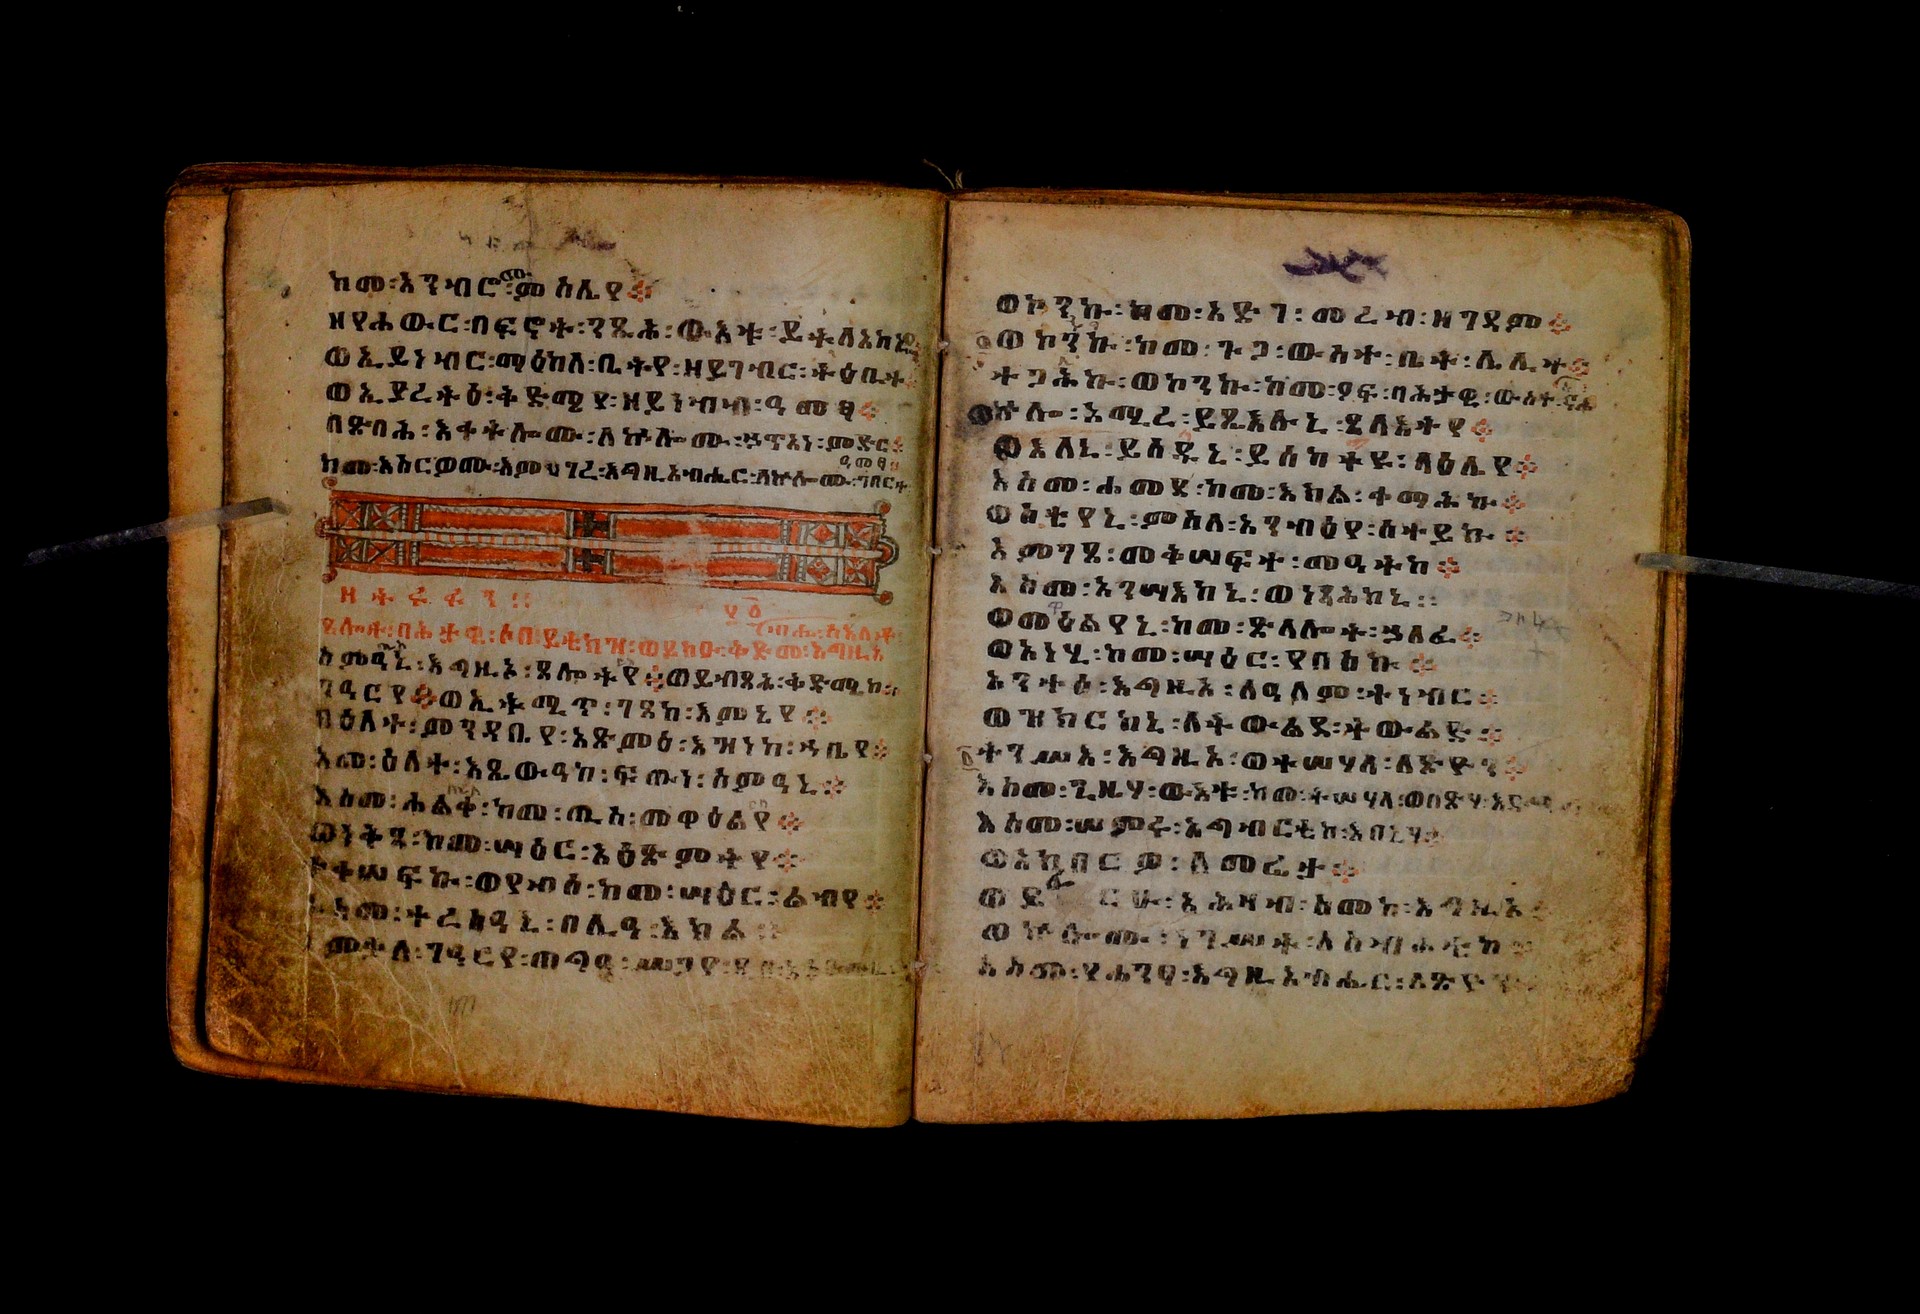 ከመ፡እንብሮ፡ሙ፡ምስሌየ፨
ዘየሐውር፡በፍኖት፡ንጹሕ፡ውእቱ፡ይትለአከኒ
ወኢይነብር፡ማዕከለ፡ቤትየ፡ዘይገብር፡ትዕቢት
ወኢያረትዕ፡ቅድሜየ፡ዘይነብብ፡ዓመፃ፨
በጽባሕ፡እቀትሎሙ፡ለኵሎሙ፡ኃጥኣነ፡ምድር፨
ከመ፡እሠርዎሙ፡እምሀገረ፡እግዚአብሔር፡ለኵሎሙ፡ገበርተ
ዓመፃ
ዘተፉፉን፡፡
ጸሎት፡በሕታዊ፡ሶበ፡ይቴክዝ፡ወይክዑ፡ቅድመ፡እግዚአ
ብሔር፡ስእለቶ
ስምዓኒ፡እግዚኦ፡ጸሎትየ፨ወይብጻሕ፡ቅድሜከ፡
ገዓርየ፨ወኢትሚጥ፡ገጸከ፡እምኔየ፨
በዕለተ፡ምንዳቤየ፡አጽምዕ፡እዝነከ፡ኀቤየ፨
አመ፡ዕለተ፡እጼውዓከ፡ፍጡነ፡ስምዓኒ፨
እስመ፡ሐልቀ፡ከመ፡ጢስ፡መዋዕልየ፨
ወነቅጸ፡ከመ፡ሣዕር፡አዕጽምትየ፨
ተቀሠፍኩ፡ወየብሰ፡ከመ፡ሣዕር፡ልብየ፨
እስመ፡ተረስዓኒ፡በሊዓ፡እክል፡፡
እምቃለ፡ገዓርየ፡ጠግዓ፡ሥጋየ፡
ወኮንኩ፡ከመ፡አድገ፡መረብ፡ዘገዳም፨
ወኮንኩ፡ከመ፡ጉጋ፡ውስተ፡ቤት፡ሌሊተ፨
ተጋሕኩ፡ወኮንኩ፡ከመ፡ዖፍ፡ባሕታዊ፡ውስተ
ኵሎ፡አሚረ፡ይጼእሉኒ፡ጸላእትየ፨
ወእለኒ፡ይሴድዱኒ፡ይስክትዩ፡ላዕሌየ፨
እስመ፡ሐመደ፡ከመ፡እክል፡ቀማሕኩ፨
ወስቴየኒ፡ምስለ፡አንብዕየ፡ሰተይኩ፨
እምገጸ፡መቅሠፍተ፡መዓትከ፨
እስመ፡አንሣእከኒ፡ወነጻሕከኒ፡፡
ወመዋዕልየኒ፡ከመ፡ጽላሎት፡ኃለፈ፨
ወአነሂ፡ከመ፡ሣዕር፡የበስኩ፨
አንተሰ፡እግዚኦ፡ለዓለም፡ትነብር፨
ወዝክርከኒ፡ለትውልደ፡ትውልድ፨
ተንሥእ፡እግዚኦ፡ወተሣሃላ፡ለጽዮን፨
እስመ፡ጊዜሃ፡ውእቱ፡ከመ፡ትሣሃላ፡ወበጽሃ፡
እስመ፡ሠምሩ፡አግብርቲከ፡እበኒሃ፨
ወአክበርዎ፡ለመሬታ፨
ወይፍርሁ፡አሕዛብ፡ስመከ፡እግዚኦ፨
ወኵሎሙ፡ነገሥት፡ለስብሐቲከ፨
እስመ፡የሐንፃ፡እግዚአብሔር፡ለጽዮን